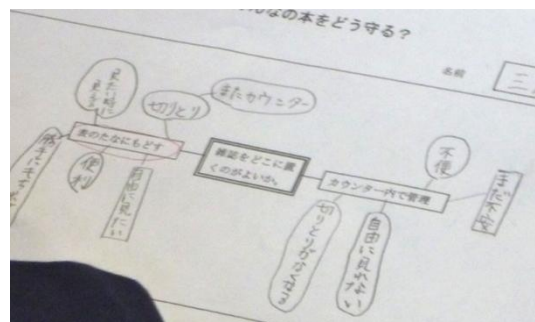 んなの本をどう守る？
名前
三
見たい時に見れる
切りとり
またカウンター
表のたなにもどす
便利
自由に見たい
雑誌をどこに置
くのがよいか。
不便
カウンター内で管理
まだ不安
切りとりがなくなる
自由に見れない